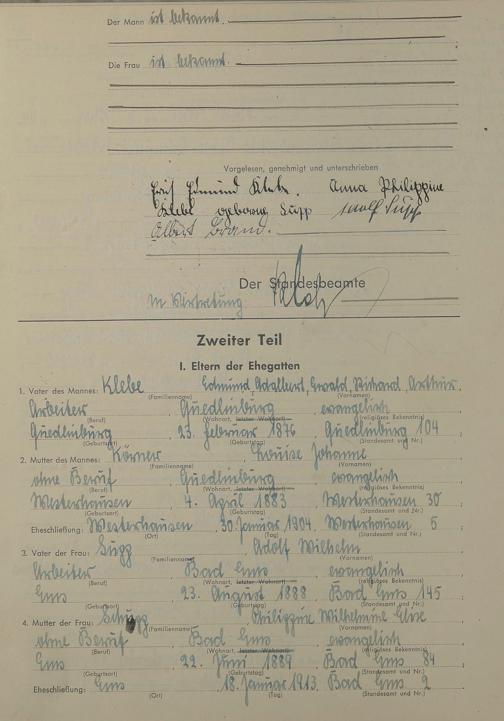 Der Mann ist bekannt.
Die Frau ist bekannt.
Vorgelesen, genehmigt und unterschrieben
Edmund Klebe. Anna Philippine
Klebe geborene Supp Adolf Supp
Albert
Der Standesbeamte
In Vertretung
Zweiter Teil
I. Eltern der Ehegatten
1. Vater des Mannes: Klebe Edmund, Adalbert, Ewald, Richard, Arthur.
(Familienname) (Vornamen)
Arbeiter Quedlinburg evangelisch
(Beruf) (Wohnort, letzter Wohnort) (religiöses Bekenntnis)
Quedlinburg 23. Februar 1876 Quedlinburg 104
(Geburtsort) (Geburtstag) (Standesamt und Nr.)
2. Mutter des Mannes: Körner Louise Johanne
(Familienname) (Vornamen)
ohne Beruf Quedlinburg evangelisch
(Beruf) (Wohnort, letzter Wohnort) (religiöses Bekenntnis)
Westerhausen 4. April 1883 Westerhausen 30
(Geburtsort) (Geburtstag) (Standesamt und Nr.)
Eheschließung: Westerhausen 30. Januar 1904. Westerhausen 5
(Ort) (Tag) (Standesamt und Nr.)
3. Vater der Frau: Supp Adolf Wilhelm
(Familienname) (Vornamen)
Arbeiter Bad Ems evangelisch
(Beruf) (Wohnort, letzter Wohnort) (religiöses Bekenntnis)
Ems 23. August 1888 Bad Ems 145
(Geburtsort) (Geburtstag) (Standesamt und Nr.)
4. Mutter der Frau: Schupp Philippine Wilhelmine Elise
(Familienname) (Vornamen)
ohne Beruf Bad Ems evangelisch
(Beruf) (Wohnort, letzter Wohnort) (religiöses Bekenntnis)
Ems 22. Juni 1889 Bad Ems 84
(Geburtsort) (Geburtstag) (Standesamt und Nr.)
Eheschließung: Ems 18. Januar 1913. Bad Ems 2
(Ort) (Tag) (Standesamt und Nr.)